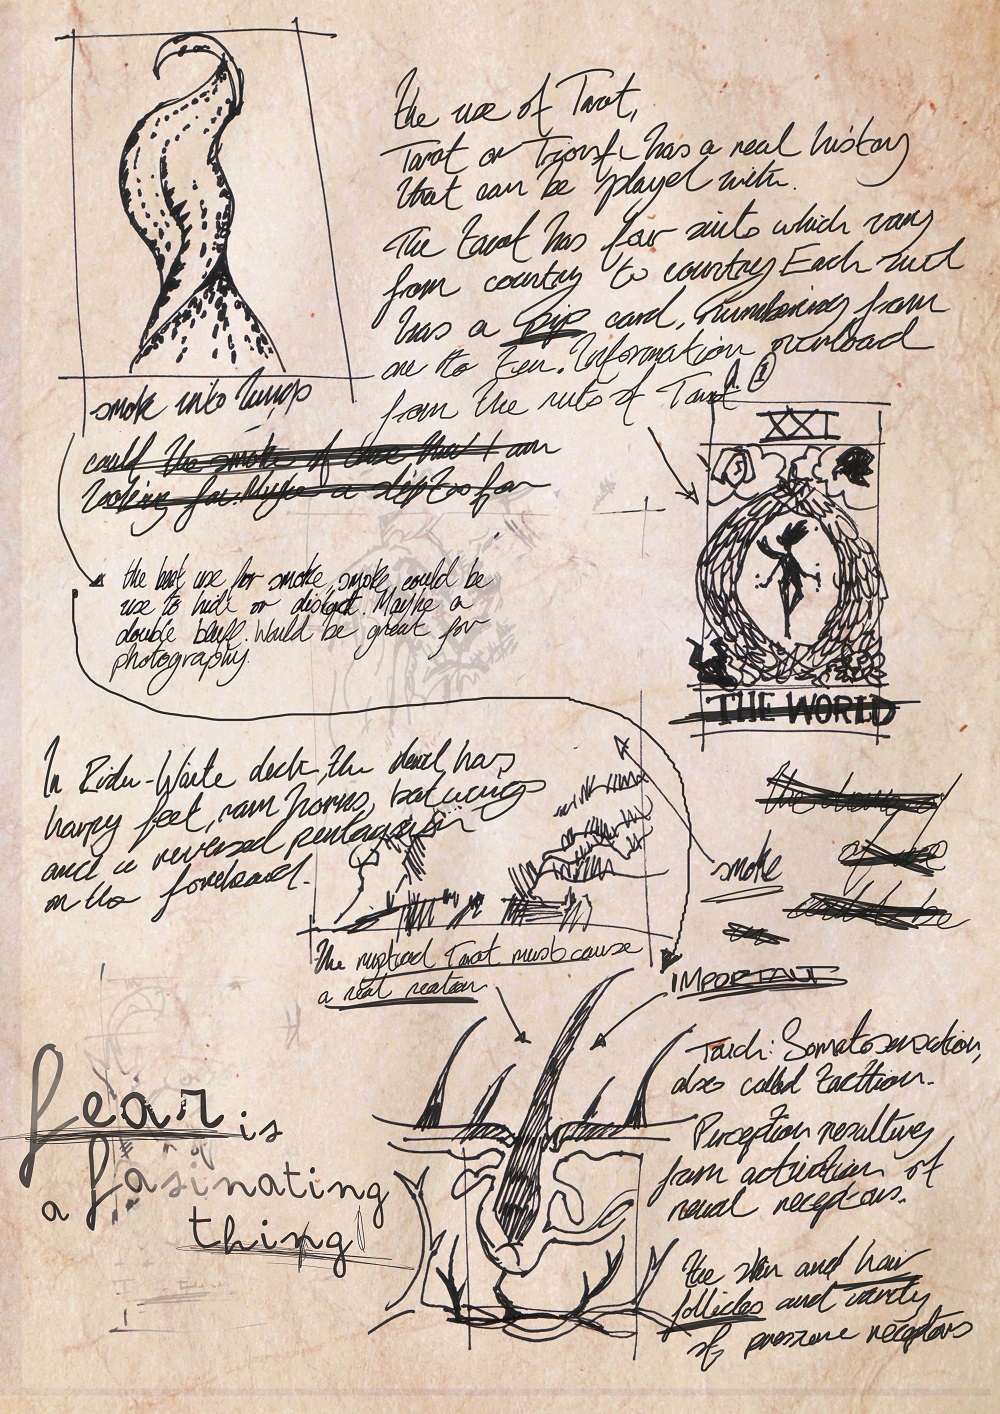 the use of Tarot,
Tarot or has a real history
that can be played with.
The tarot has four suits which vary
from country to country Each suit
has a pip card, numbering from
one to ten. Information overload
from the ruts of Tarot
XXI
smoke into lungs
could the smoke of I am
looking for. Maybe a far
the best use for smoke, smoke could be
use to hide or distract. Maybe a
double bluff. Would be great for
photography.
THE WORLD
In Rider-Waite deck, the devil has
harpy feet, ram horns, bat wings
and a reversed pentagram
on the forehead.
smoke
The Tarot must cause
a real reation
IMPORTANT
Touch: Somatosensation,
also called tacttion.
Perception resulting
from activation of
neural receptors.
the skin and hair
follicles and
of pressure receptors
fear is
a fasinating
thing!